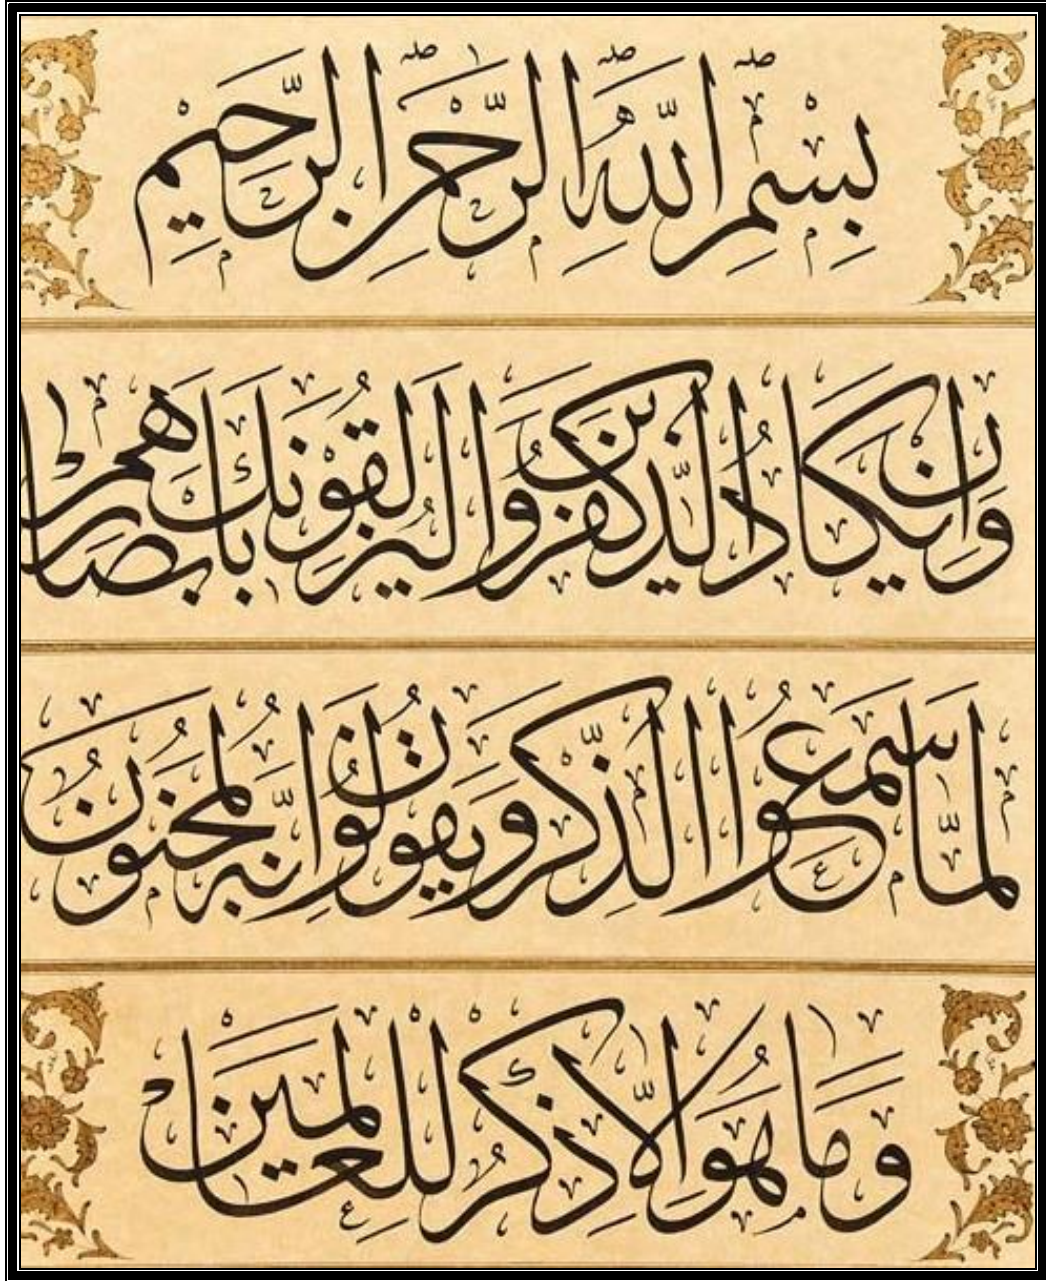 بِسْمِ اللهِ الرَّحْمٰنِ الرَّحِيمِ
وَإِنْ يَكَادُ الَّذِينَ كَفَرُوا لَيُزْلِقُونَكَ بِأَبْصَارِهِمْ
لَمَّا سَمِعُوا الذِّكْرَ وَيَقُولُونَ إِنَّهُ لَمَجْنُونٌ
وَمَا هُوَ إِلَّا ذِكْرٌ لِلْعَالَمِينَ